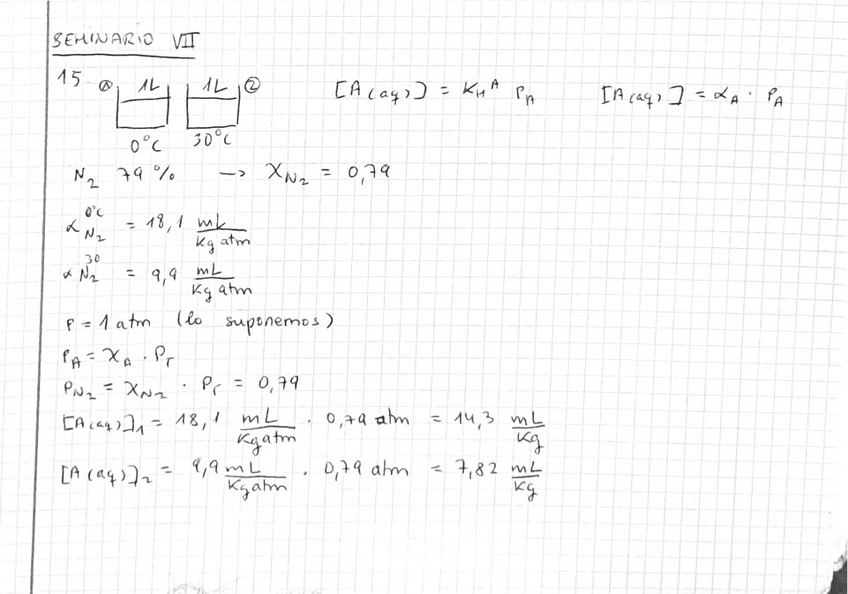 SEMINARIO VII
15. ① 1L 1L ② [A(aq)] = K_H^A P_A [A(aq)] = α_A · P_A
0°C 30°C
N₂ 79 % → X_N₂ = 0,79
α_N₂^0°C = 18,1 mL/Kg atm
α_N₂^30 = 9,9 mL/Kg atm
P = 1 atm (lo suponemos)
P_A = X_A · P_T
P_N₂ = X_N₂ · P_T = 0,79
[A(aq)]₁ = 18,1 mL/Kg atm · 0,79 atm = 14,3 mL/Kg
[A(aq)]₂ = 9,9 mL/Kg atm · 0,79 atm = 7,82 mL/Kg